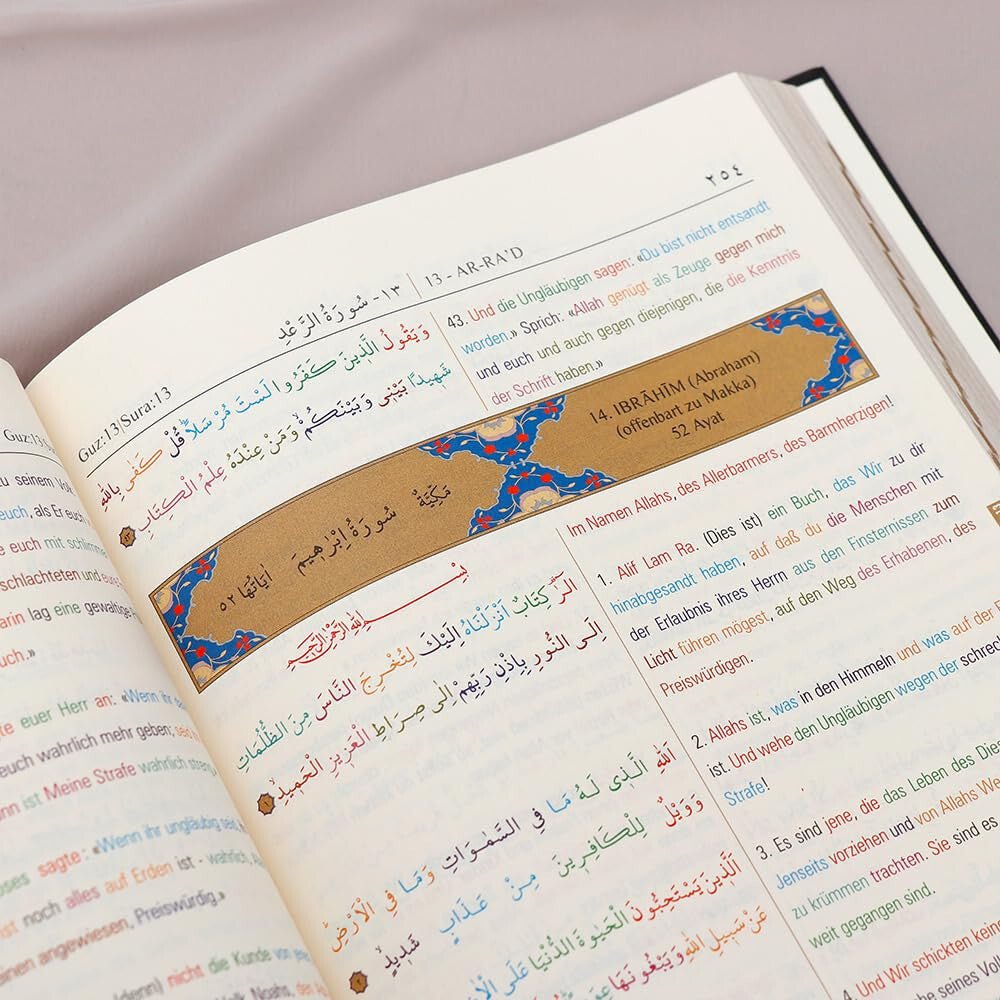 Guz:13|
zu seinem Volk
euch, als Er euch
euch mit schlimme
schlachteten und
lag eine gewaltige
uch.»
euer Herr an: «Wenn ihr
euch wahrlich mehr geben; seid
ist Meine Strafe wahrlich streng
oses sagte: «Wenn ihr ungläubig seid,
noch alles auf Erden ist - wahrlich,
angewiesen, Preiswürdig.»
(denn) nicht die Kunde von jene
Noahs, der
٢٥٤
Guz:13|Sura:13
١٣- سُورَةُ الرَّعْدِ
13 - AR-RA’D
وَيَقُولُ الَّذٖينَ كَفَرُوا لَسْتَ مُرْسَلاًؕ قُلْ كَفٰى بِاللّٰهِ
شَهٖيدًا بَيْنٖى وَبَيْنَكُمْۙ وَمَنْ عِنْدَهُ عِلْمُ الْكِتَابِ ٤٣
43. Und die Ungläubigen sagen: «Du bist nicht entsandt
worden.» Sprich: «Allah genügt als Zeuge gegen mich
und euch und auch gegen diejenigen, die die Kenntnis
der Schrift haben.»
سُورَةُ اِبْرٰهٖيمَ مَكِّيَّةٌ اٰيَاتُهَا ٥٢
14. IBRĀHĪM (Abraham)
(offenbart zu Makka)
52 Ayat
بِسْمِ اللّٰهِ الرَّحْمٰنِ الرَّحٖيمِ
الٓرٰ كِتَابٌ اَنْزَلْنَاهُ اِلَيْكَ لِتُخْرِجَ النَّاسَ مِنَ الظُّلُمَاتِ
اِلَى النُّورِ بِاِذْنِ رَبِّهِمْ اِلٰى صِرَاطِ الْعَزٖيزِ الْحَمٖيدِۙ ١
اَللّٰهِ الَّذٖى لَهُ مَا فِى السَّمٰوَاتِ وَمَا فِى الْاَرْضِؕ
وَوَيْلٌ لِلْكَافِرٖينَ مِنْ عَذَابٍ شَدٖيدٍۙ ٢
اَلَّذٖينَ يَسْتَحِبُّونَ الْحَيٰوةَ الدُّنْيَا عَلَى
عَنْ سَبٖيلِ اللّٰهِ وَيَبْغُونَهَا
Im Namen Allahs, des Allerbarmers, des Barmherzigen!
1. Alif Lam Ra. (Dies ist) ein Buch, das Wir zu dir
hinabgesandt haben, auf daß du die Menschen mit
der Erlaubnis ihres Herrn aus den Finsternissen zum
Licht führen mögest, auf den Weg des Erhabenen, des
Preiswürdigen.
2. Allahs ist, was in den Himmeln und was auf der
ist. Und wehe den Ungläubigen wegen der schrec
Strafe!
3. Es sind jene, die das Leben des Dies
Jenseits vorziehen und von Allahs We
zu krümmen trachten. Sie sind es
weit gegangen sind.
4. Und Wir schickten keine
seines Volk